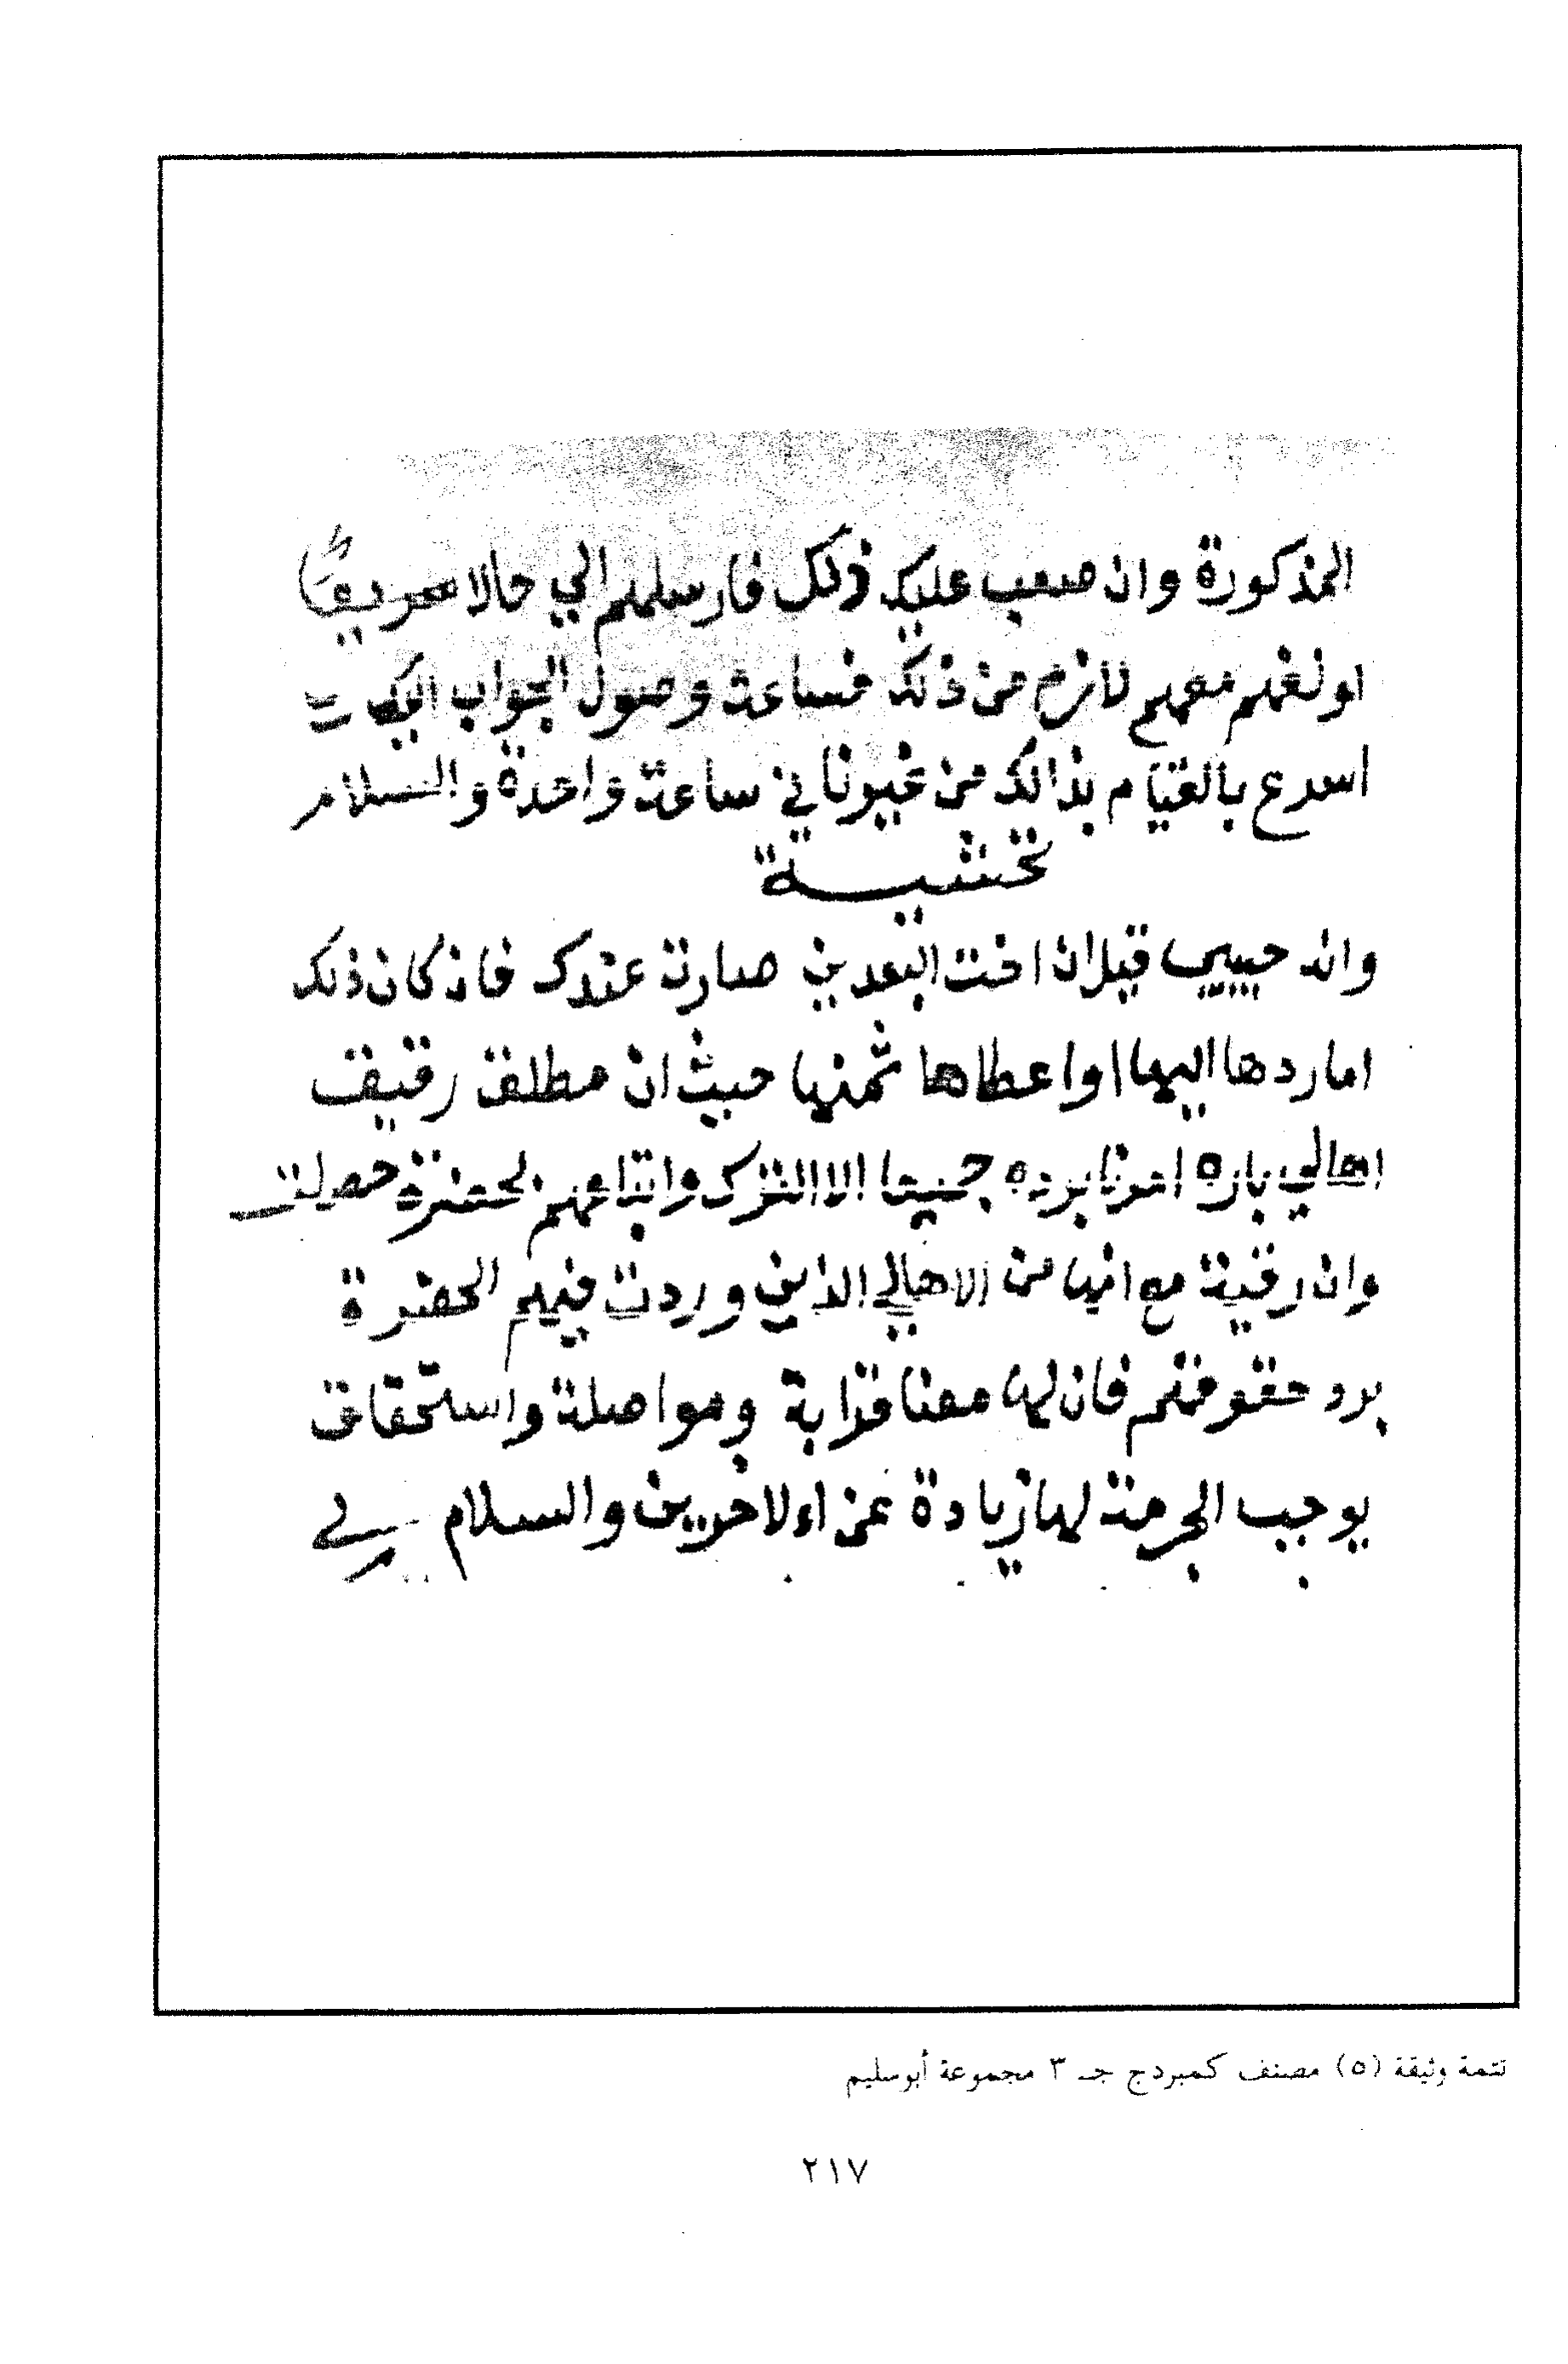 المذكورة وان صعب عليك ذلك فارسلهم الي حالا سريعا
اولغهم معهم لازم من ذلك فساعة وصول الجواب اليك
اسرع بالقيام بذالك من غيرونا في ساعة واحدة والسلام
تحشية
وانه حبيبي قيل ان اخت البعدين صارت عندك فان كان ذلك
اما ردها اليها او اعطاها ثمنها حيث ان مطلق رقيق
اهالي باره امرنا برده جميعا الا الترك واتباعهم لحضرة حصلت
وان رقية مع انها من الاهالي الذين وردت فيهم الحضرة
برد حقوقهم فان لها معنا قرابة ومواصلة واستحقاق
يوجب الحرمة لها زيادة عن اءلاخريين والسلام
تتمة وثيقة (٥) مصنف كمبردج جـ ٣ مجموعة أبو سليم
٢١٧